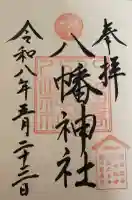 奉拝
八幡神社
令和八年五月二十三日